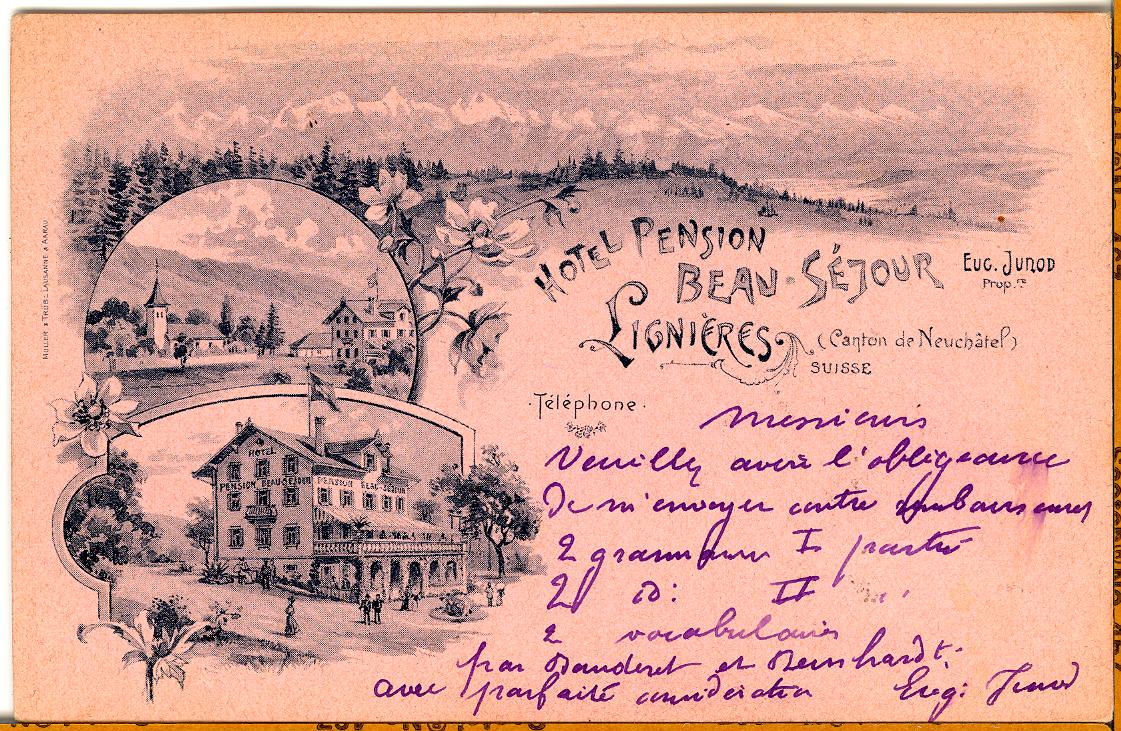 HOTEL PENSION
BEAU-SÉJOUR
EUG. JUNOD
Prop.re
LIGNIÈRES
(Canton de Neuchâtel)
SUISSE
Téléphone
MÜLLER & TRÜB LAUSANNE & AARAU
HOTEL
PENSION BEAU-SEJOUR PENSION BEAU-SEJOUR
Messieurs
Veuillez avoir l'obligeance
De m'envoyer contre remboursement
2 grammaires I partie
2 id: II
2 vocabulaires
par Banderet et Reinhardt.
avec parfaite considération Eug: Junod